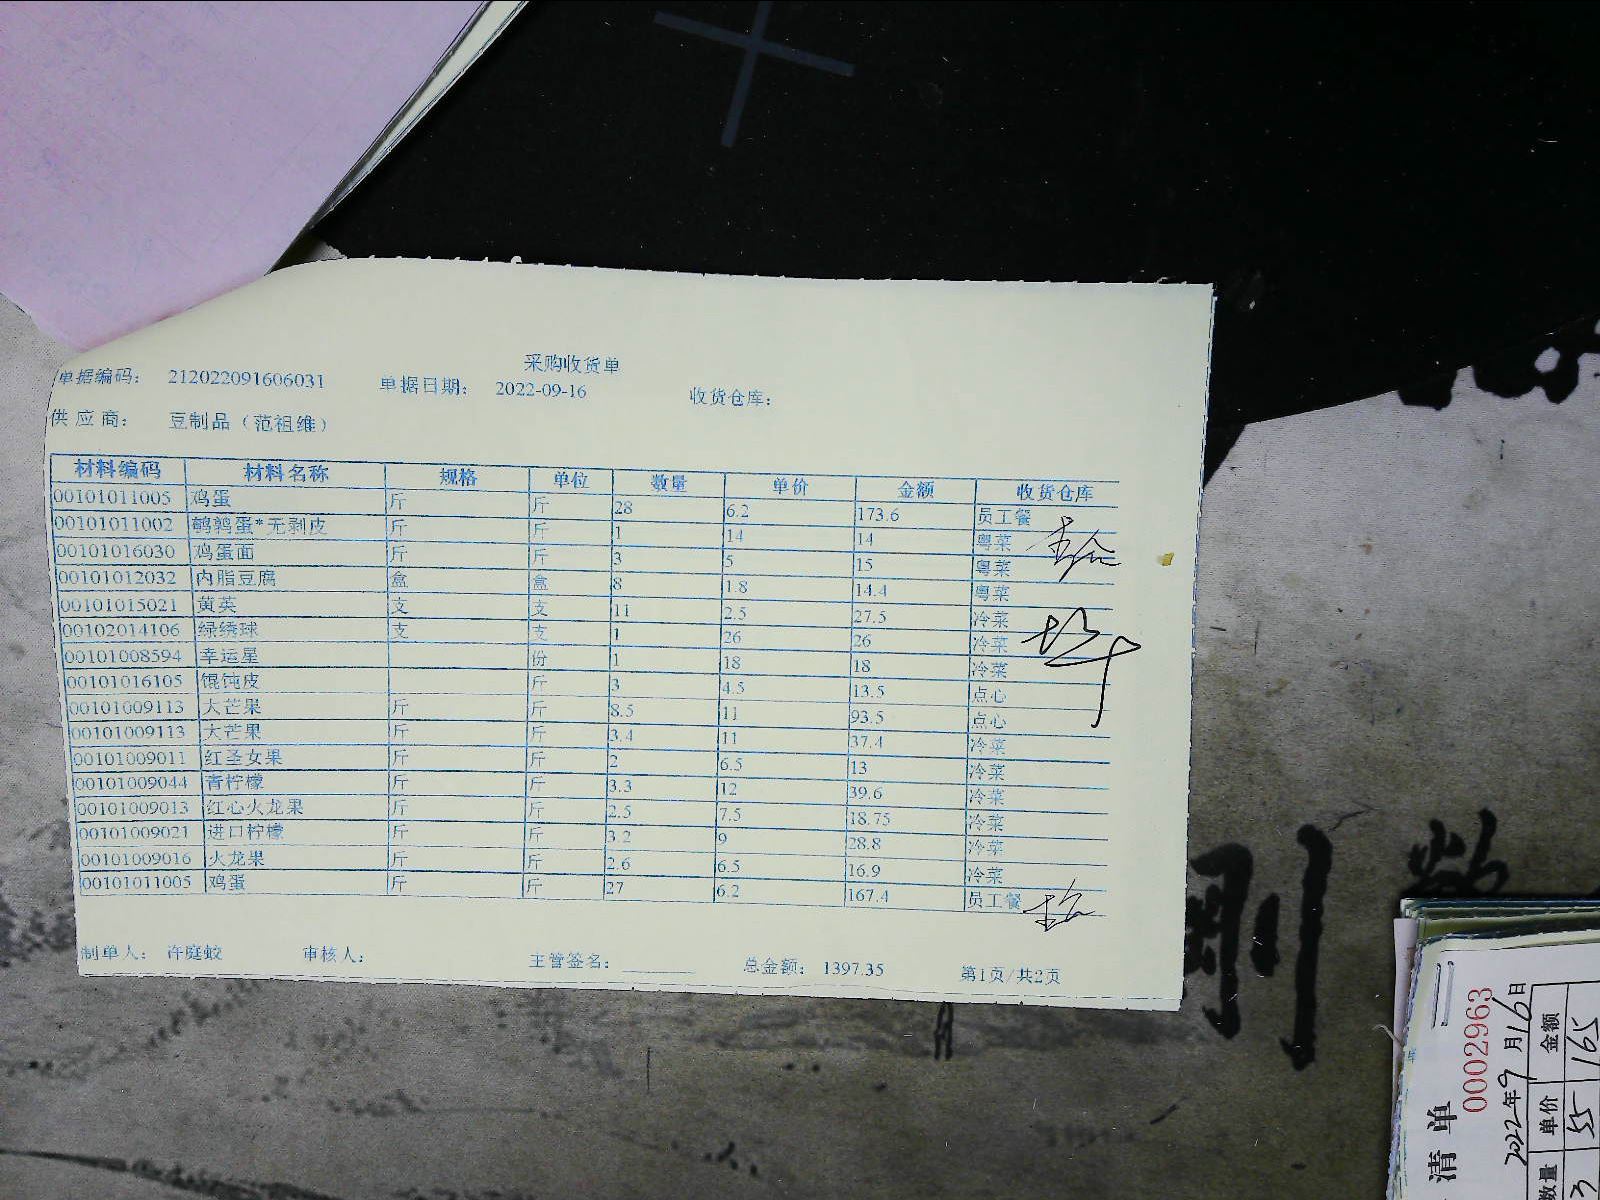 采购收货单
单据编码： 212022091606031 单据日期： 2022-09-16 收货仓库：
供应商： 豆制品（范祖维）
材料编码 材料名称 规格 单位 数量 单价 金额 收货仓库
00101011005 鸡蛋 斤 斤 28 6.2 173.6 员工餐
00101011002 鹌鹑蛋*无剥皮 斤 斤 1 14 14 粤菜
00101016030 鸡蛋面 斤 斤 3 5 15 粤菜
00101012032 内脂豆腐 盒 盒 8 1.8 14.4 粤菜
00101015021 黄英 支 支 11 2.5 27.5 冷菜
00102014106 绿绣球 支 支 1 26 26 冷菜
00101008594 幸运星 份 1 18 18 冷菜
00101016105 馄饨皮 斤 3 4.5 13.5 点心
00101009113 大芒果 斤 斤 8.5 11 93.5 点心
00101009113 大芒果 斤 斤 3.4 11 37.4 冷菜
00101009011 红圣女果 斤 斤 2 6.5 13 冷菜
00101009044 青柠檬 斤 斤 3.3 12 39.6 冷菜
00101009013 红心火龙果 斤 斤 2.5 7.5 18.75 冷菜
00101009021 进口柠檬 斤 斤 3.2 9 28.8 冷菜
00101009016 火龙果 斤 斤 2.6 6.5 16.9 冷菜
00101011005 鸡蛋 斤 斤 27 6.2 167.4 员工餐
制单人： 许庭蛟 审核人： 主管签名： 总金额： 1397.35 第1页/共2页
清单
0002963
2022年9月16日
数量 单价 金额
3 55 165